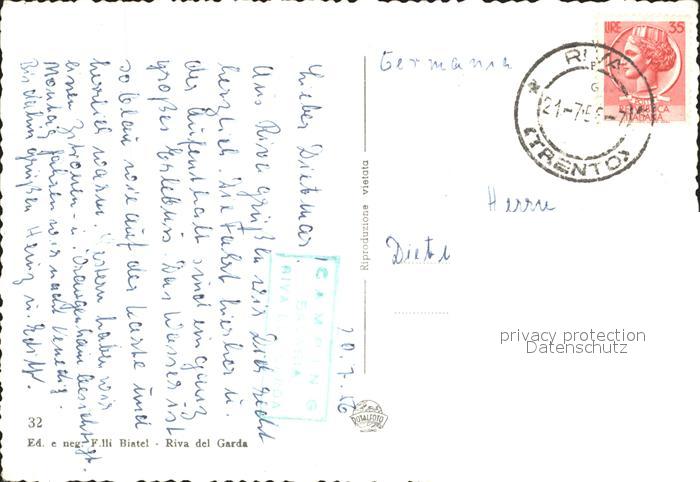 Germania
LIRE 35
RIVA
21-7-56-
(TRENTO)
Herrn
Diet
privacy protection
Datenschutz
20.7.56
Lieber Dietmar.
Aus Riva grüßen wir Dich recht
herzlich. Die Fahrt hierher u.
der Aufenthalt sind ein ganz
großes Erlebnis. Das Wasser ist
so blau wie auf der Karte und
herrlich warm. Gestern haben wir
einen Zitronen- u. Orangenhain besichtigt.
Montag fahren wir nach Venedig.
Bis dahin grüßen Heinz u. Edith.
CAMPING
RIVA
Riproduzione vietata
32
Ed. e neg. F.lli Biatel - Riva del Garda